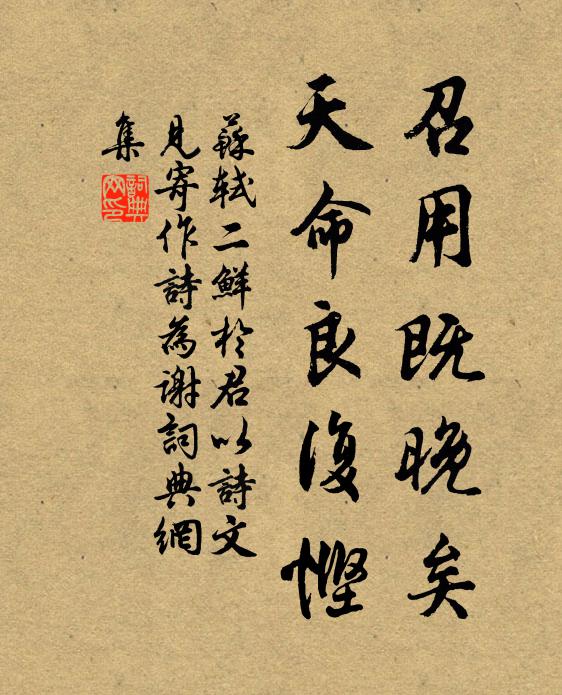 召用既晚矣
天命良復慳
蘇軾二鮮於君以詩文
見寄作詩為謝詞典網
集
詞典網印